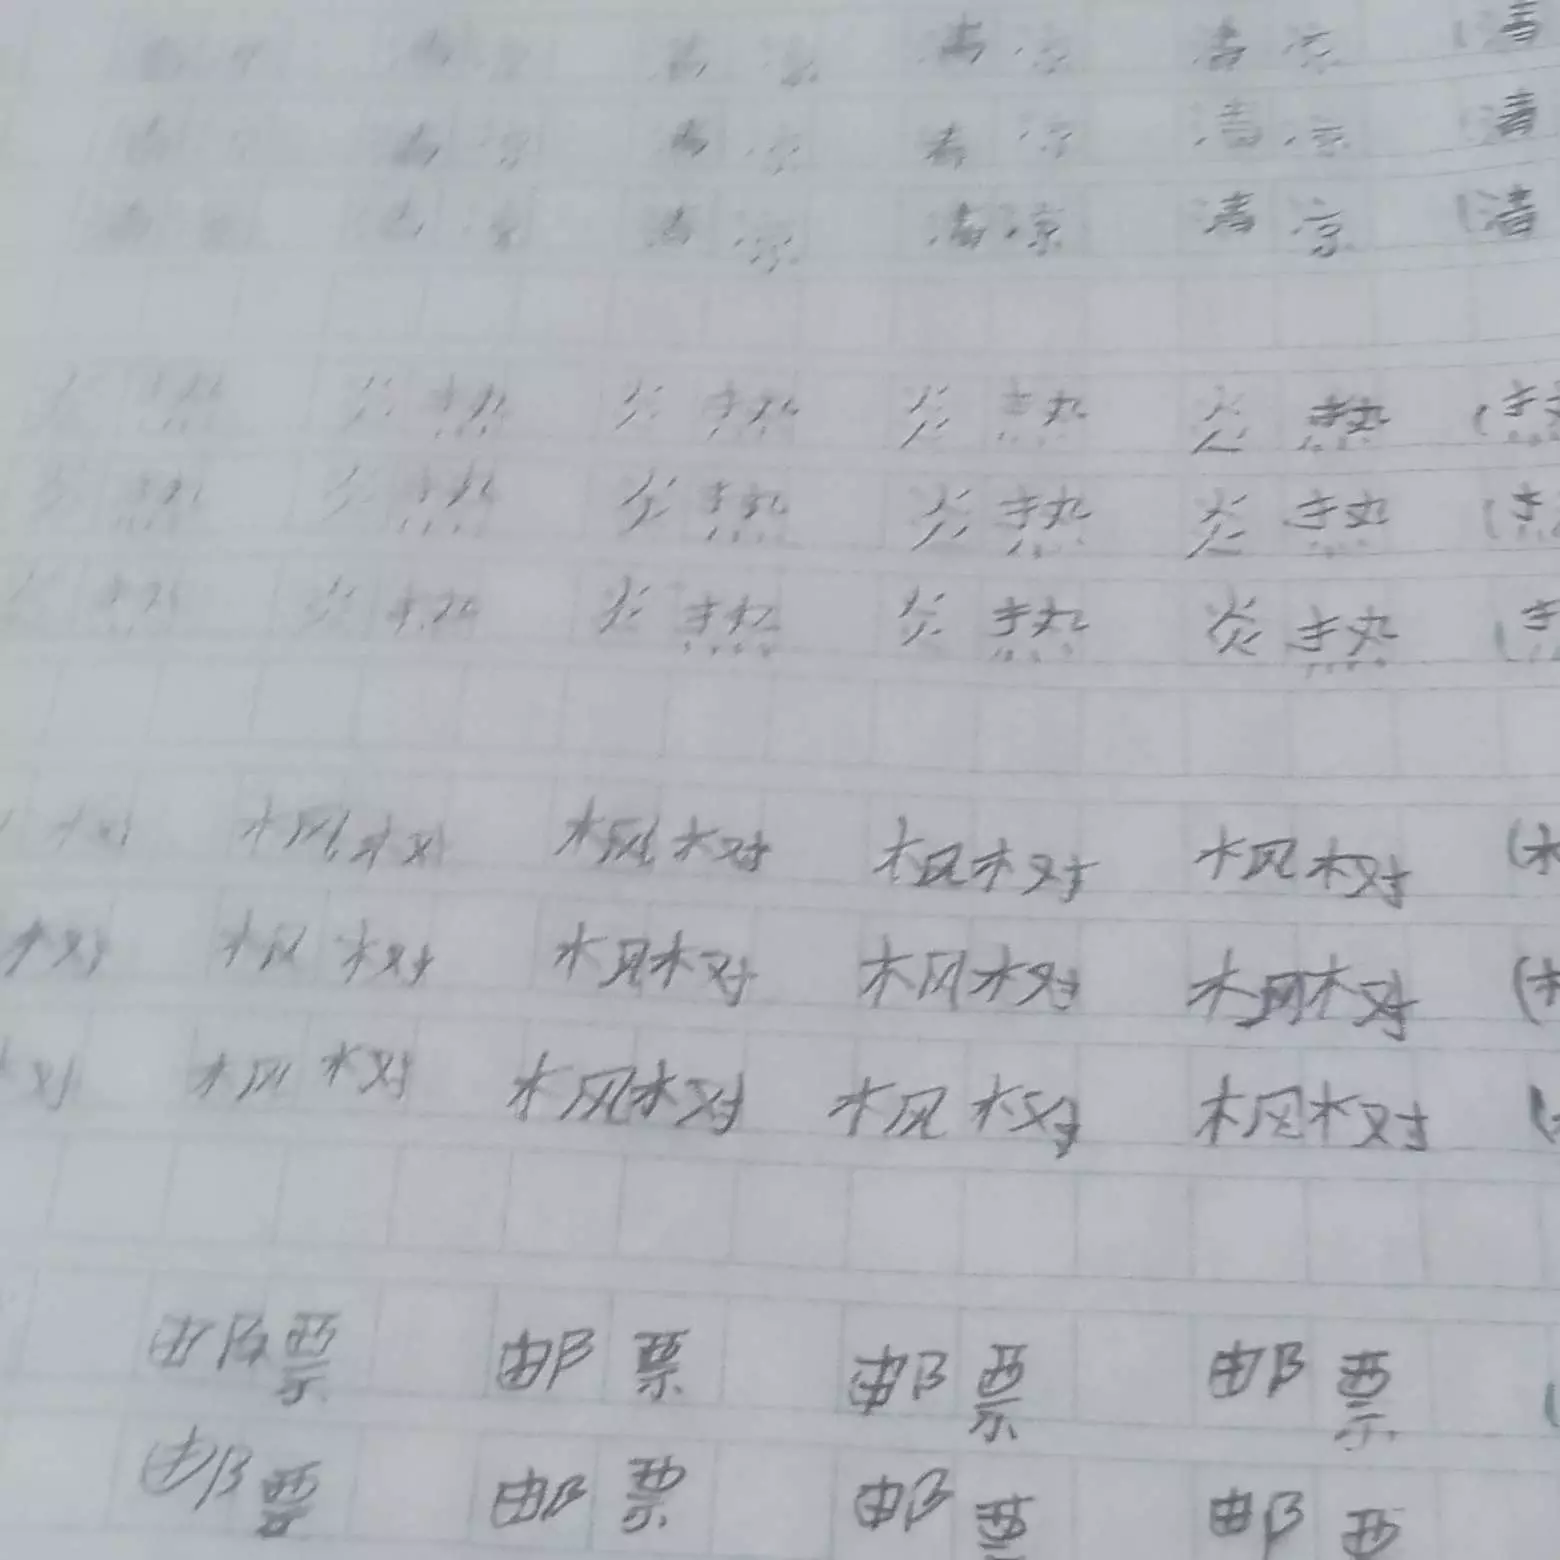 清凉 清凉 清凉 清凉 清凉 (清
清凉 清凉 清凉 清凉 清凉 (清
清凉 清凉 清凉 清凉 清凉 (清
炎热 炎热 炎热 炎热 炎热 (热
炎热 炎热 炎热 炎热 炎热 (热
炎热 炎热 炎热 炎热 炎热 (热
树 枫树 枫树 枫树 枫树 (
树 枫树 枫树 枫树 枫树 (
树 枫树 枫树 枫树 枫树 (
邮票 邮票 邮票 邮票 (
邮票 邮票 邮票 邮票